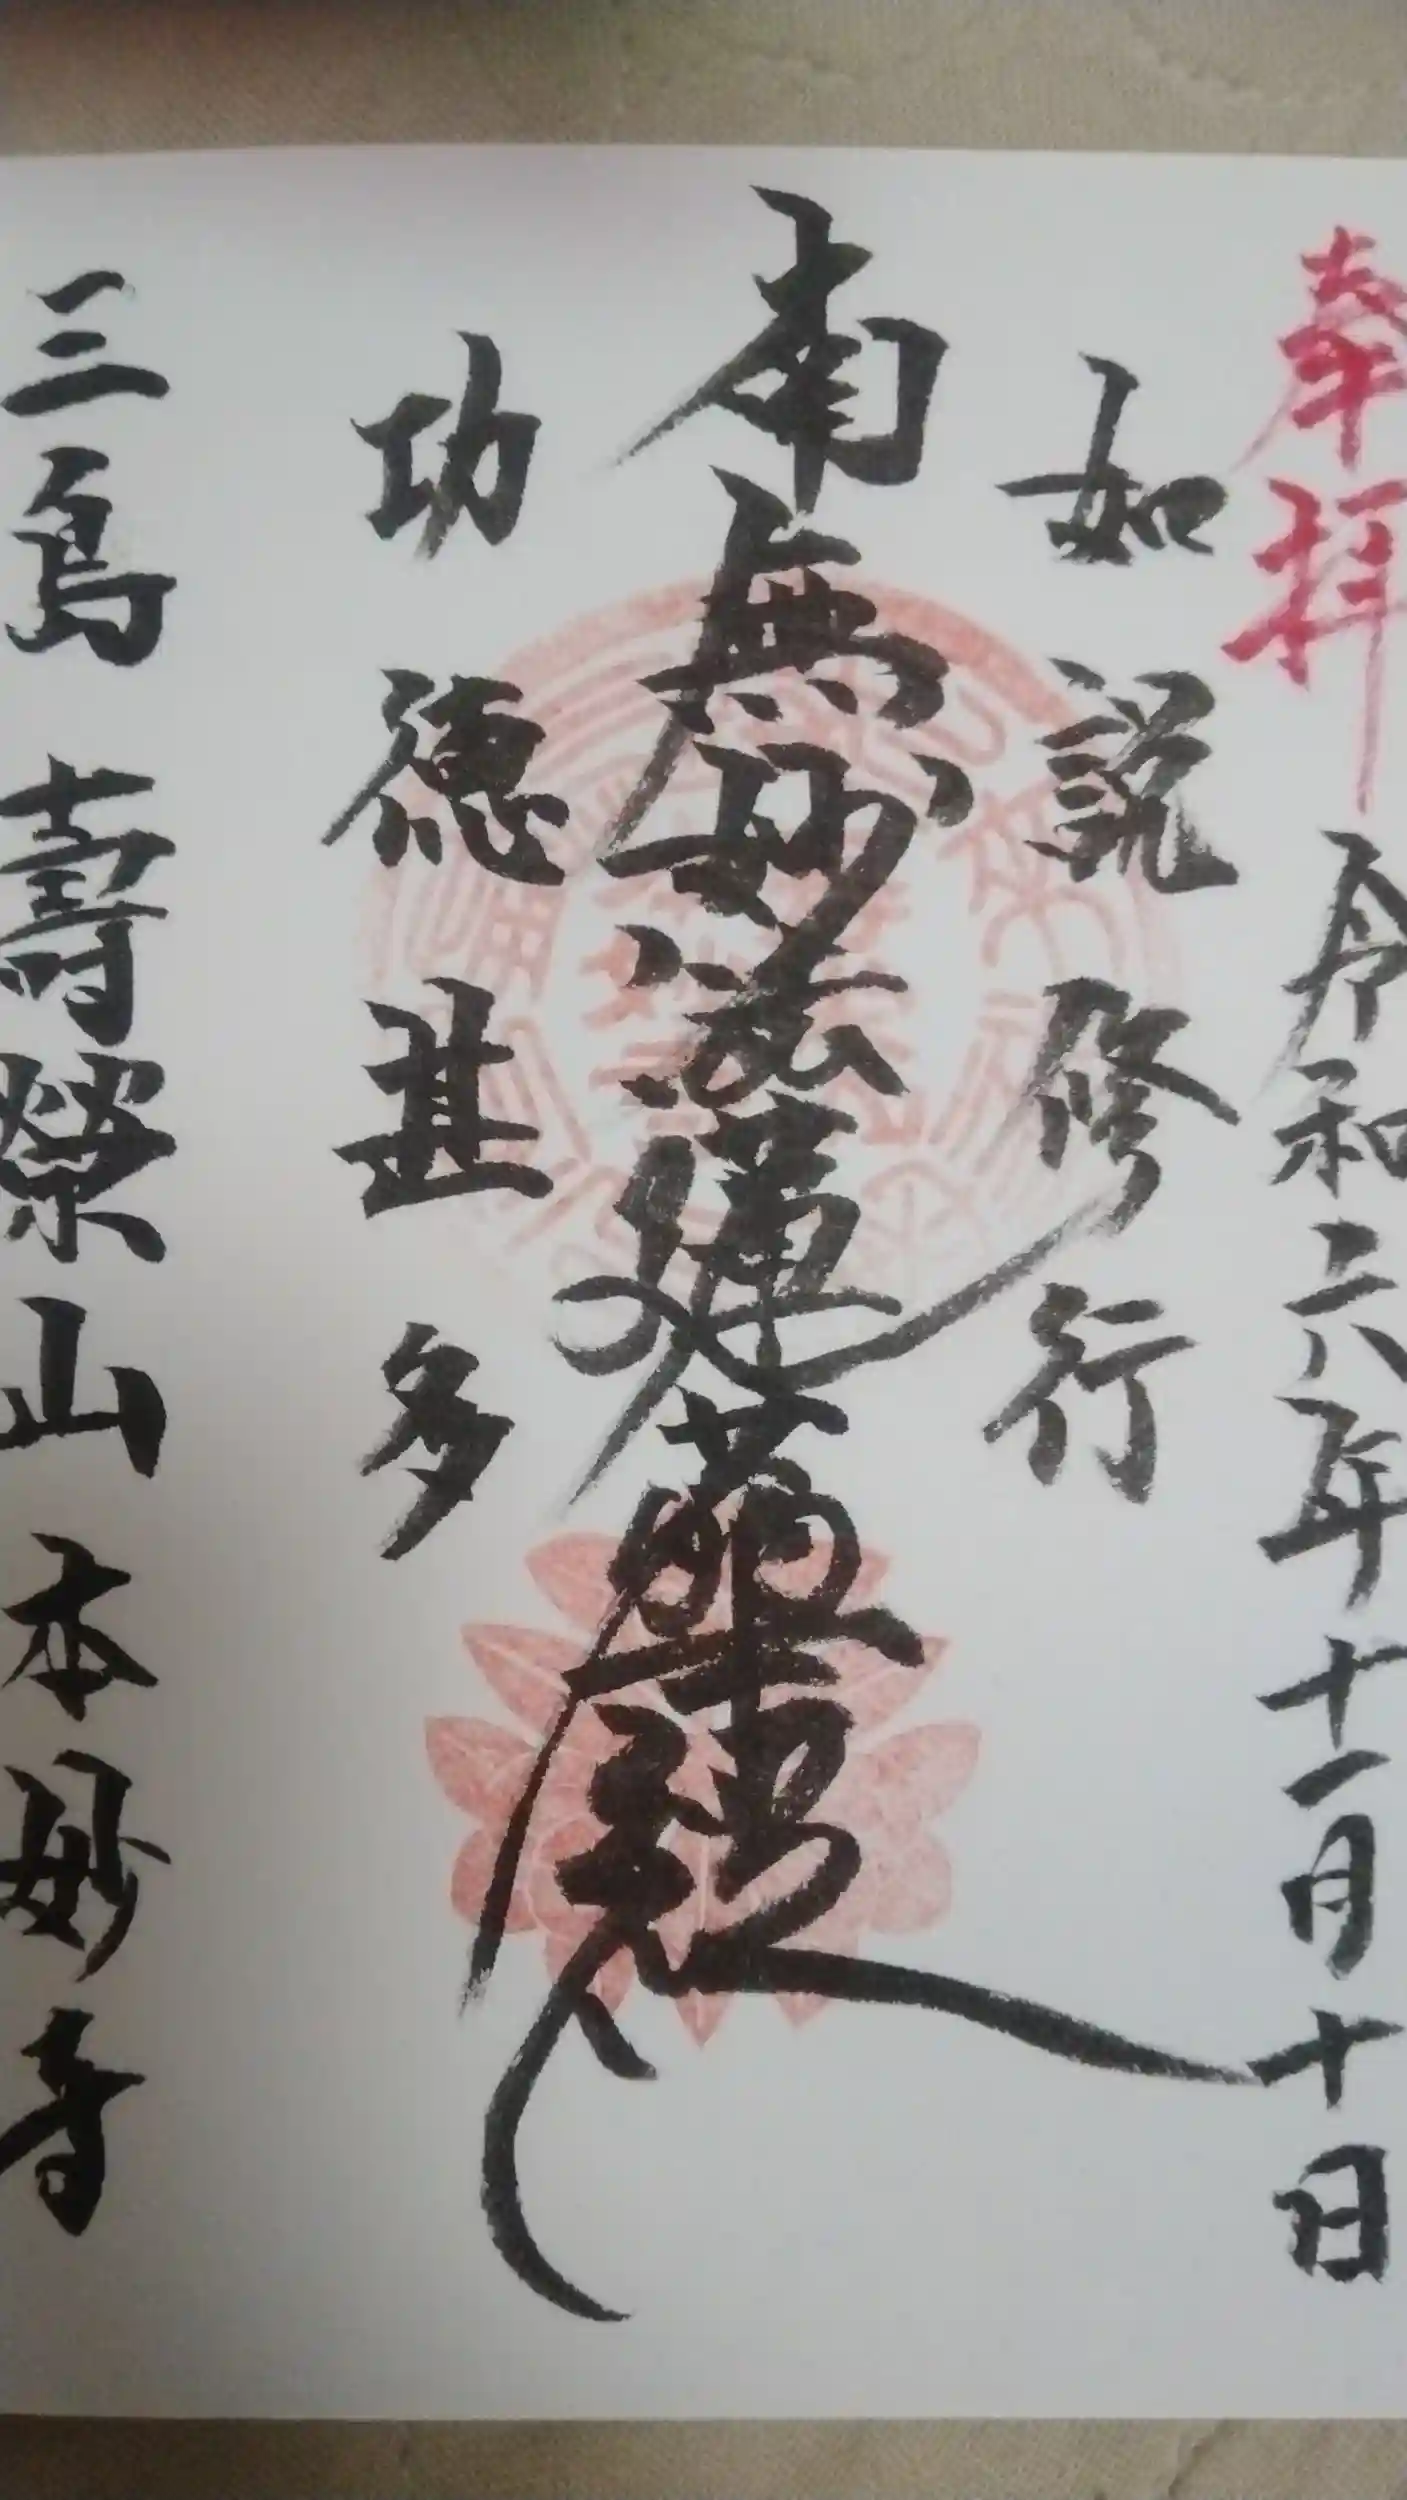 奉拝
令和六年十一月十日
如説修行
南無妙法蓮華經
功徳甚多
三島 壽榮山本妙寺